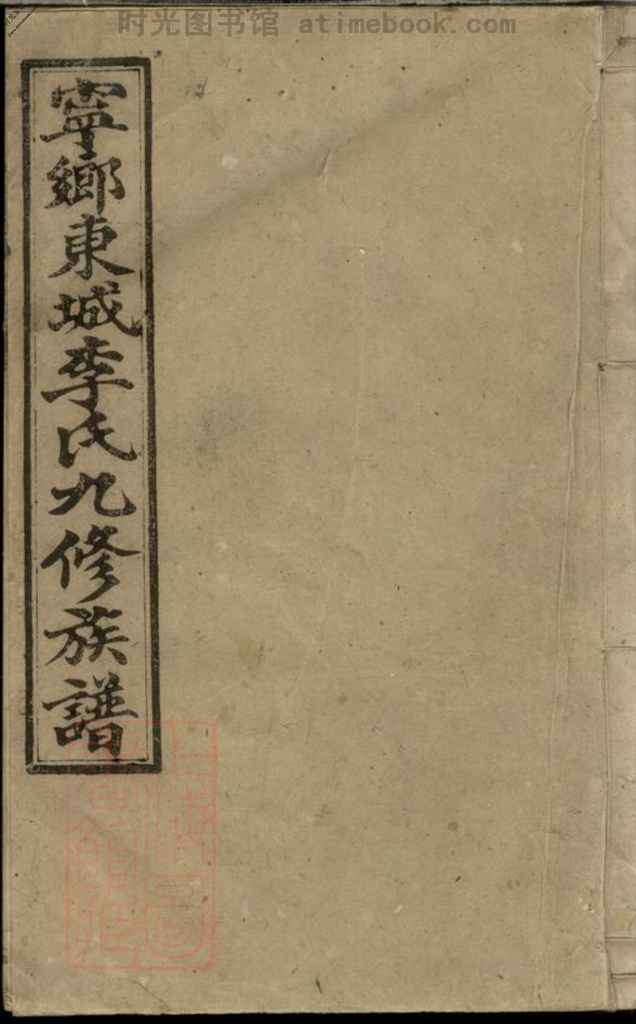 时光图书馆 atimebook.com
寧鄉東城李氏九修族譜